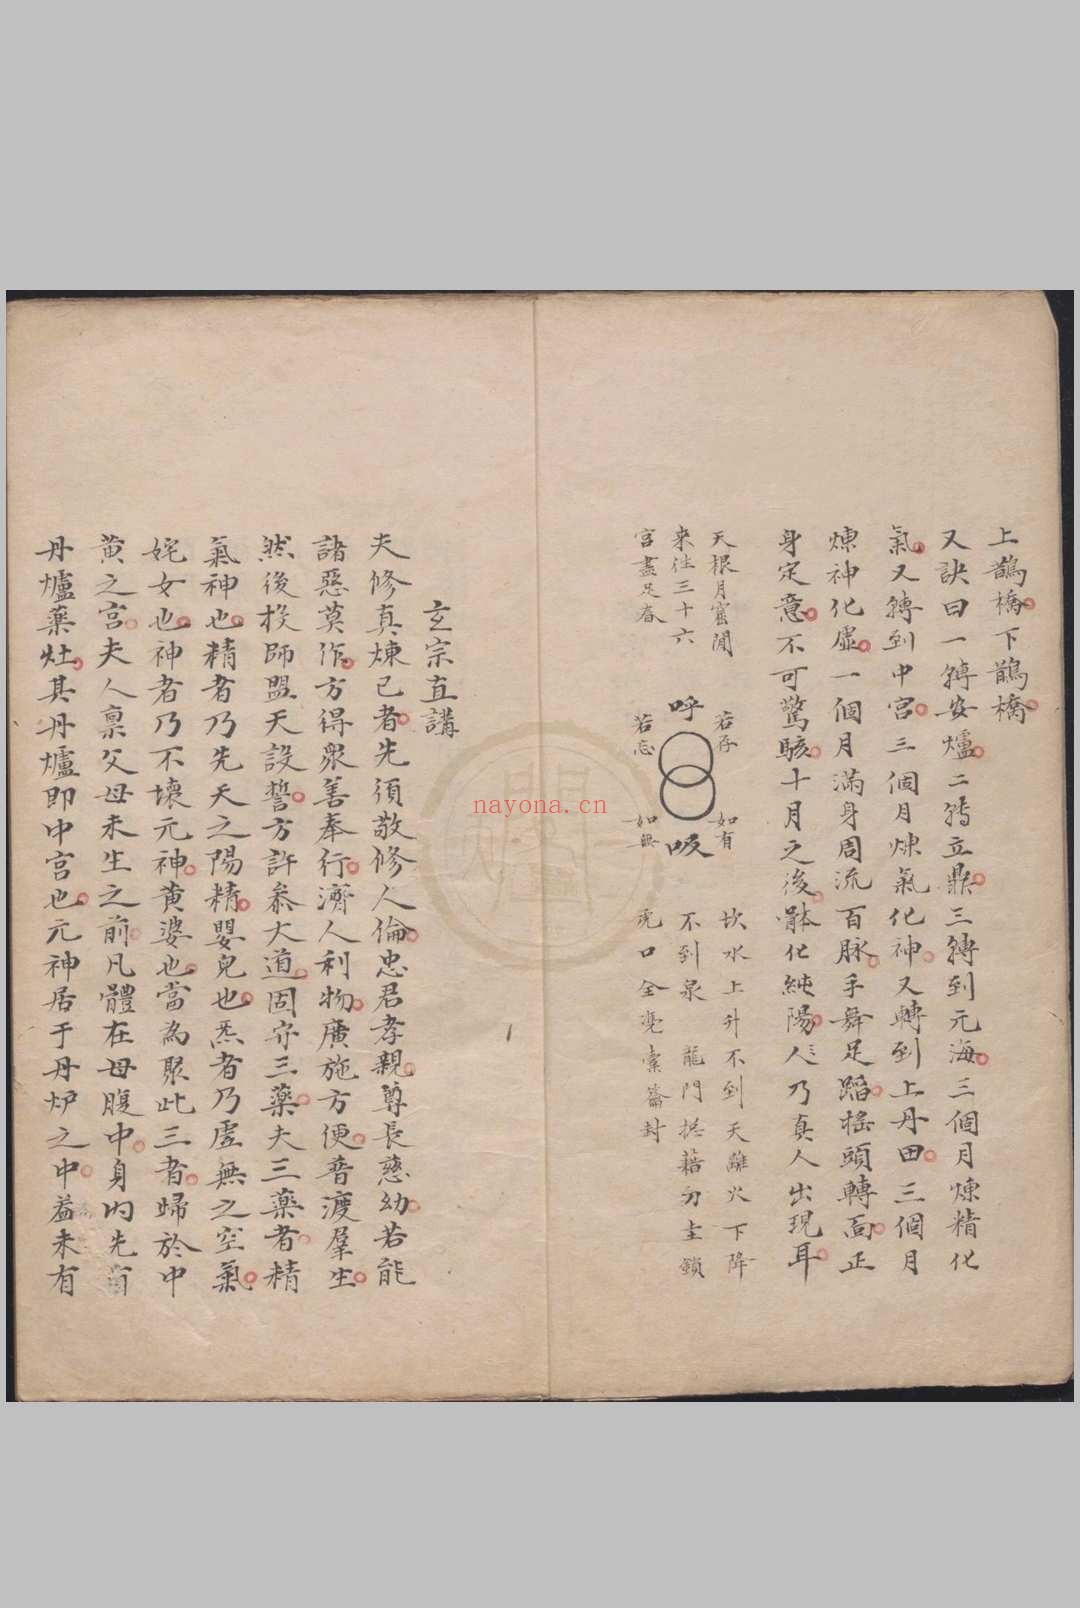 上鵲橋下鵲橋
又訣曰一轉安爐二轉立鼎三轉到元海三個月煉精化
氣又轉到中宮三個月煉氣化神又轉到上丹田三個月
煉神化虛一個月滿身周流百脉手舞足蹈搖頭轉面正
身定意不可驚駭十月之後骵化純陽人乃真人出現耳
天根月窟閒
来往三十六
宮盡是春
呼
吸
若存
如有
若忘
如無
坎水上升不到天離火下降
不到泉 龍門 藉 圭鎖
虎口全 橐籥封
玄宗直講
夫修真煉己者先須敬修人倫忠君孝親尊長慈幼若能
諸惡莫作方得衆善奉行濟人利物廣施方便普渡羣生
然後投師盟天設誓方許叅大道固守三藥夫三藥者精
氣神也精者乃先天之陽精嬰兒也炁者乃虛無之空氣
姹女也神者乃不壞元神黄婆也當為聚此三者歸於中
黄之宮夫人禀父母未生之前凡體在母腹中身内先有
丹爐藥灶其丹爐即中宮也元神居于丹炉之中葢未有
nayona.cn